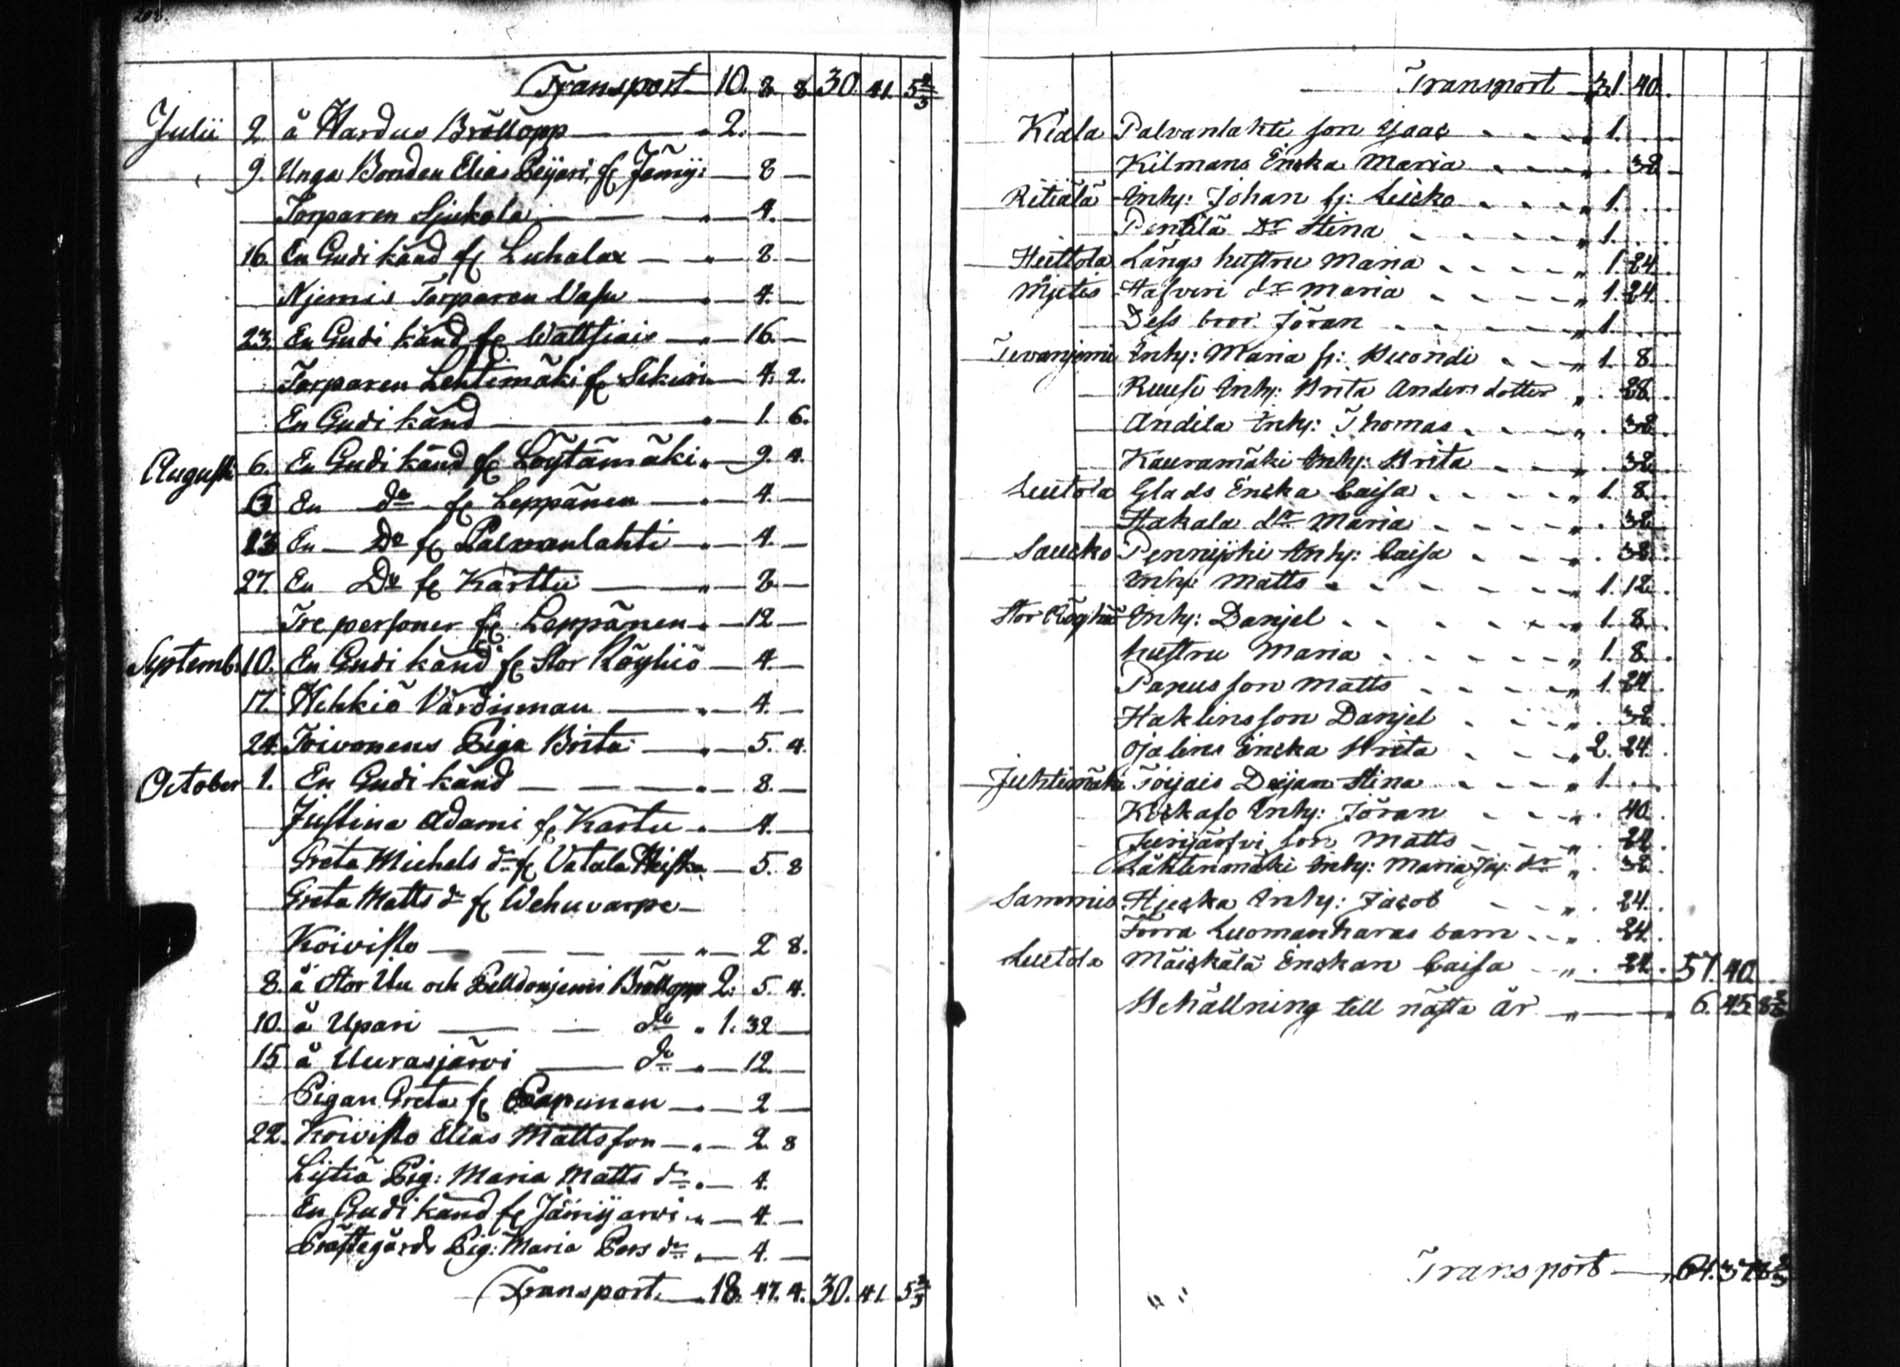 Transport 10. 8. 8. 30. 41. 5 2/3
Julii 2 å Wardus Bröllopp " 2. —
9. Unga Bonden Elias Peijari fr. Jämij: — 8 —
Torparen Sjukola " — 4. —
16. En Gudi känd fr. Luhalax — 8. —
Njemis Torparen — 4. —
23. En Gudi känd fr. Wattsiais — 16. —
Torparen Lehtimäki fr. — 4. 2.
En Gudi känd — 1. 6.
Augusti 6. En Gudi känd fr. Löytämäki " — 9. 4.
En do fr. Leppänen — 4. —
23 En — Do fr. Palvanlahti — 4. —
27. En Do fr. Karttu — 8 —
Tre personer fr. Leppänen " — 12 —
Septemb. 10. En Gudi känd fr. Stor Röyhiö — 4. —
17. Wehkiö Värdinnan — 4. —
24. Toivonens Piga Brita — 5. 4.
October 1. En Gudi känd — 8. —
Justina Adami fr. Kartu " — 4. —
Greta Michels dr fr. Vatala — 5. 8
Greta Matts dr fr. Wehuvarpe —
Koivisto — " — 2 8.
8. å Stor Uu och Bröllopp 2. 5. 4.
10. å Upari — do " 1. 32 —
15 å Uurasjärvi — do " — 12. —
Pigan Greta fr. Papunen — 2 —
22. Koivisto Elias Mattsson — " — 2. 8
Lijtiä Pig: Maria Matts dr " — 4.
En Gudi känd fr. Jämijärvi " — 4. —
Prästegårds Pig: Maria Pers dr " — 4. —
Transport 18. 47. 4. 30. 41. 5 2/3
Transport 31. 40.
Kiala Palvanlahti son Isaac " 1. . .
Kilmans Encka Maria " . 32
Ritiälä Inhy: Johan fr: Leicko " 1. . .
Penttilä Dr Stina " 1. . .
Heittola Längs hustru Maria " 1. 24.
Mjetis Hafveri dr Maria " 1. 24.
Dess bror Jöran " 1. . .
Inhy: Maria fr: " 1. 8.
Inhy: Brita Anders dotter " .
Andila Inhy: Thomas " . 32
Kauramäki Inhy: Brita " . 32
Luttola Glads Encka Caisa " 1. 8.
Hakala dr Maria " . 32
Saucko Pennijski Inhy: Caisa " . 32
Inhy: Matts " 1. 12.
Stor Röyhiö Inhy: Danjel " 1. 8.
hustru Maria " 1. 8.
Panus son Matts " 1. 24.
Haklins son Danjel . 32
Ojalins Encka Brita 2. 24.
Juhtimäki Töijais Deijan Stina " 1. . .
Inhy: Jöran " . 40.
Jurijärfvi son Matts " . 24.
Lähtenmäki Inhy: Maria dr " . 32
Sammis Hjecka Inhy: Jacob " . 24.
Förra Luomanharas barn " . 24.
Luttola Mäiskälä Enckan Caisa " . 24. 57. 40.
Behållning till nästa år " 6. 45. 8 2/3
Transport